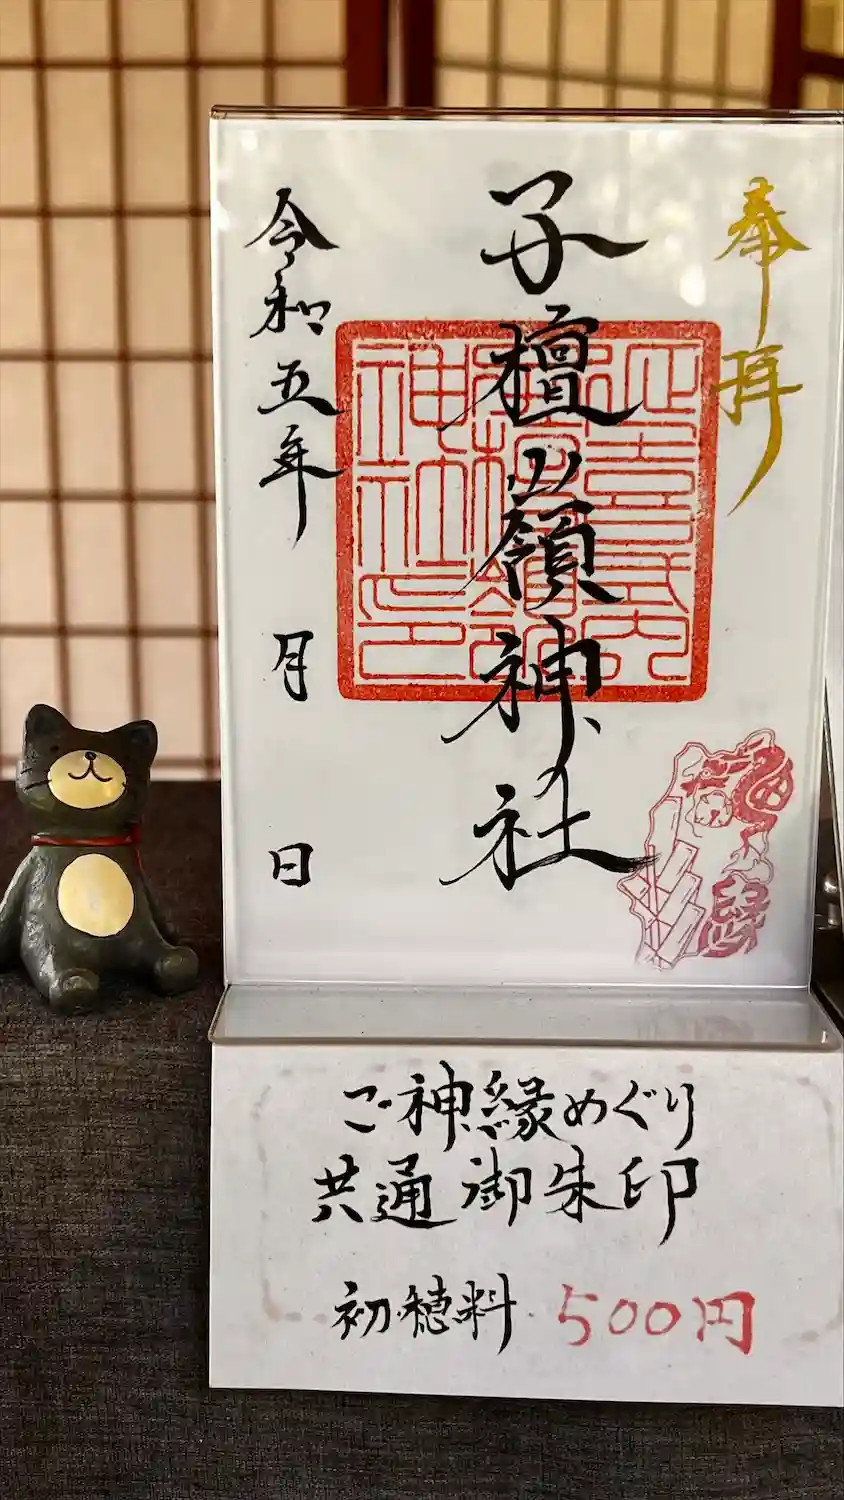 奉拝
子檀嶺神社
延喜式内
子檀嶺
神社印
令和五年 月 日
ご神縁めぐり
共通御朱印
初穂料 500円